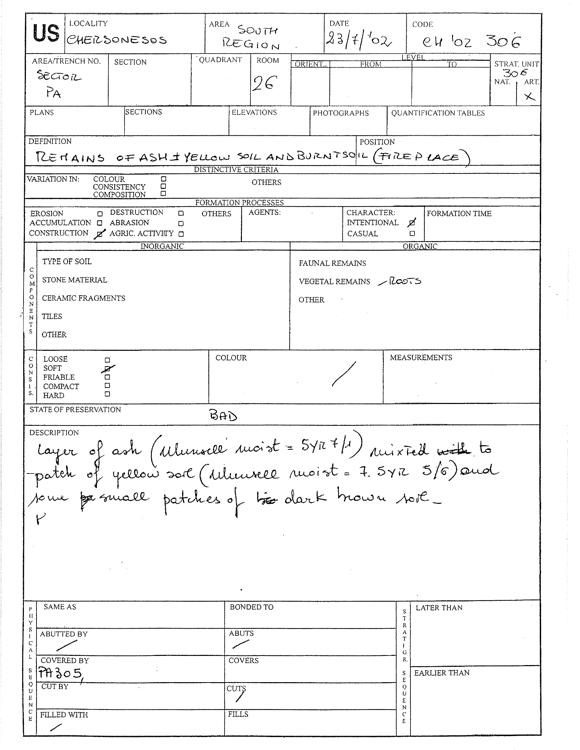 US
LOCALITY
CHERSONESOS
AREA SOUTH
REGION
DATE
23/7/'02
CODE
CH '02 306
AREA/TRENCH NO.
SECTOR
PA
SECTION
QUADRANT
ROOM
26
LEVEL
ORIENT. FROM TO
STRAT. UNIT
306
NAT. ART.
X
PLANS
SECTIONS
ELEVATIONS
PHOTOGRAPHS
QUANTIFICATION TABLES
DEFINITION
POSITION
REMAINS OF ASH + YELLOW SOIL AND BURNT SOIL (FIREPLACE)
DISTINCTIVE CRITERIA
VARIATION IN: COLOUR
CONSISTENCY
COMPOSITION
OTHERS
FORMATION PROCESSES
EROSION DESTRUCTION OTHERS
ACCUMULATION ABRASION
CONSTRUCTION AGRIC. ACTIVITY
AGENTS:
CHARACTER:
INTENTIONAL
CASUAL
FORMATION TIME
COMPONENTS
INORGANIC
TYPE OF SOIL
STONE MATERIAL
CERAMIC FRAGMENTS
TILES
OTHER
ORGANIC
FAUNAL REMAINS
VEGETAL REMAINS - ROOTS
OTHER
CONSIS.
LOOSE
SOFT
FRIABLE
COMPACT
HARD
COLOUR
/
MEASUREMENTS
STATE OF PRESERVATION
BAD
DESCRIPTION
Layer of ash (Munsell moist = 5YR 7/1) mixted with to
patch of yellow soil (Munsell moist = 7.5YR 5/6) and
some small patches of dark brown soil_
PHYSICAL SEQUENCE
SAME AS
BONDED TO
ABUTTED BY
/
ABUTS
/
COVERED BY
PA305,
COVERS
CUT BY
CUTS
/
FILLED WITH
/
FILLS
STRATIGR. SEQUENCE
LATER THAN
EARLIER THAN